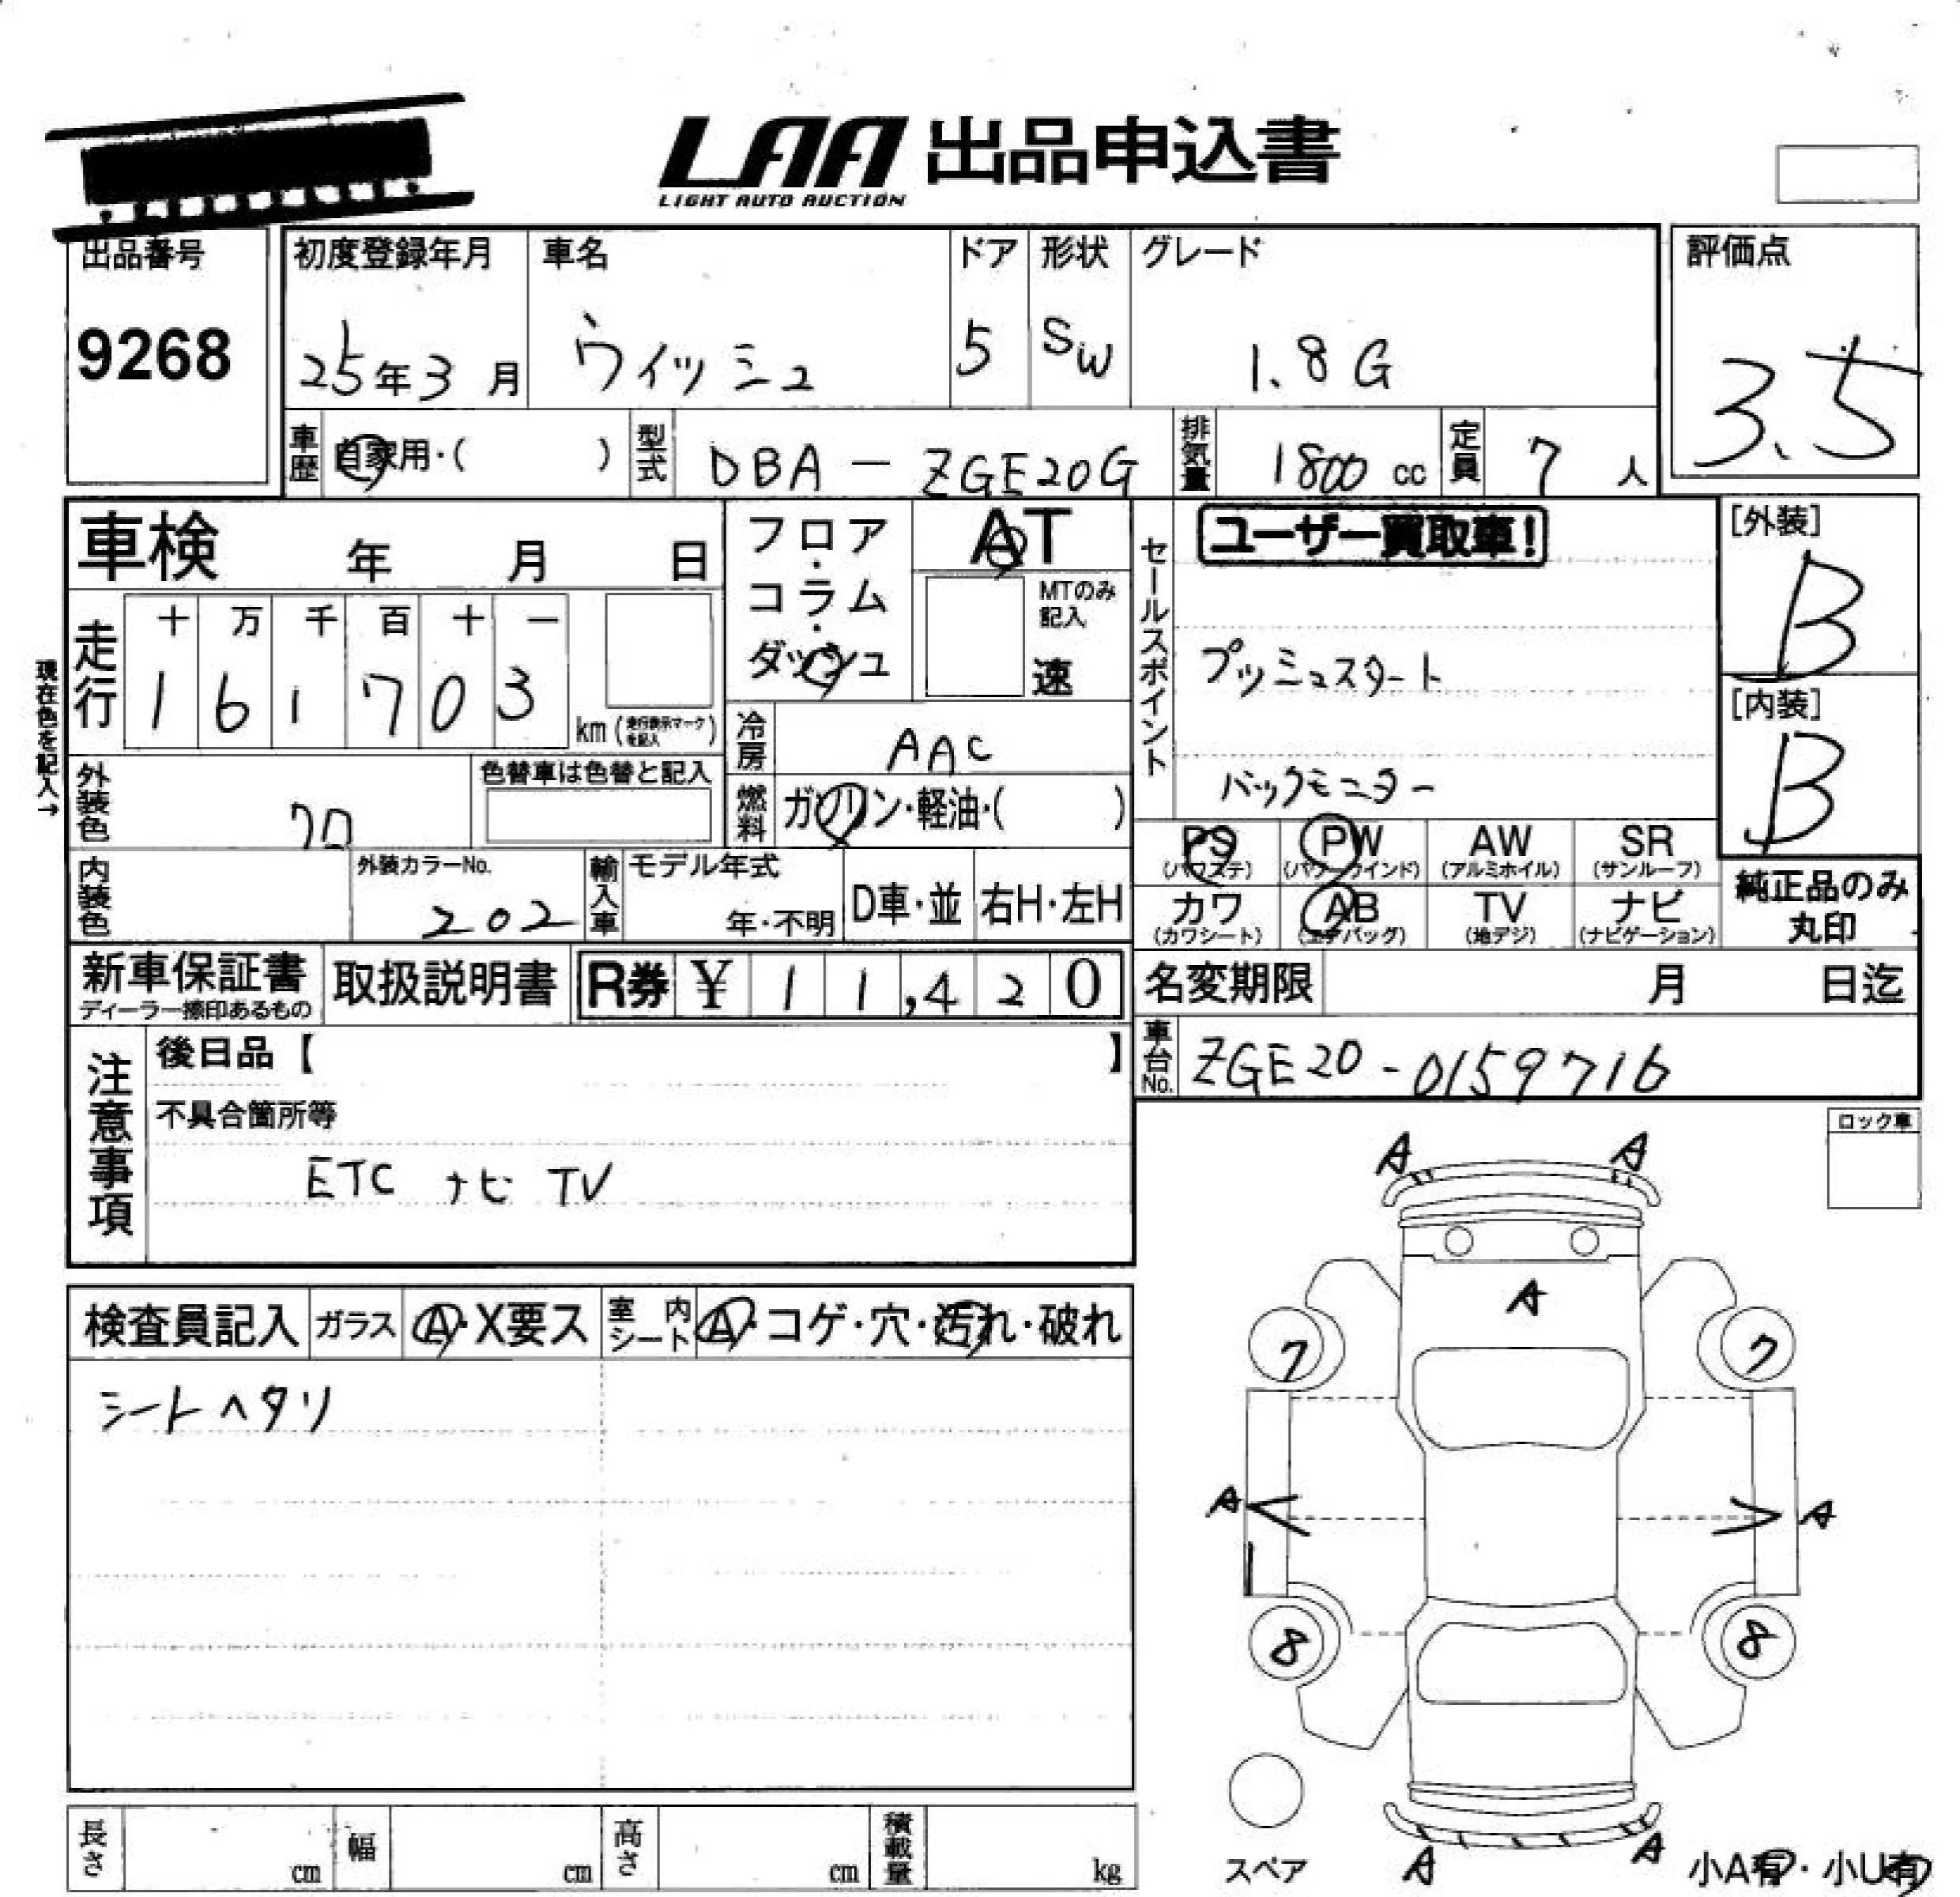 LAA 出品申込書
LIGHT AUTO AUCTION
出品番号 初度登録年月 車名 ドア 形状 グレード 評価点
9268 25年3月 ウィッシュ 5 SW 1.8G 3.5
車歴 自家用・( ) 型式 DBA-ZGE20G 排気量 1800cc 定員 7人
車検 年 月 日 フロア・コラム・ダッシュ AT セールスポイント ユーザー買取車! [外装]
B
MTのみ記入
速
走行 十 万 千 百 十 一
1 6 1 7 0 3 km(走行表示マークを記入)
現在色を記入→
プッシュスタート [内装]
B
冷房 AAC
バックモニター
外装色 クロ 色替車は色替と記入 燃料 ガソリン・軽油・( )
PS (パワステ) PW (パワーウインド) AW (アルミホイル) SR (サンルーフ)
カワ (カワシート) AB (エアバッグ) TV (地デジ) ナビ (ナビゲーション) 純正品のみ丸印
内装色 外装カラーNo. 202 輸入車 モデル年式 年・不明 D車・並 右H・左H
新車保証書 ディーラー捺印あるもの 取扱説明書 R券 ¥ 1 1,4 2 0 名変期限 月 日迄
注意事項 後日品【 】 車台No. ZGE20-0159716
不具合箇所等 ロック車
ETC ナビ TV
A A
検査員記入 ガラス A・X要ス 室内シート A・コゲ・穴・汚れ・破れ A
7 7
シートヘタリ
A A
8 8
長さ cm 幅 cm 高さ cm 積載量 kg スペア A A 小A有・小U有